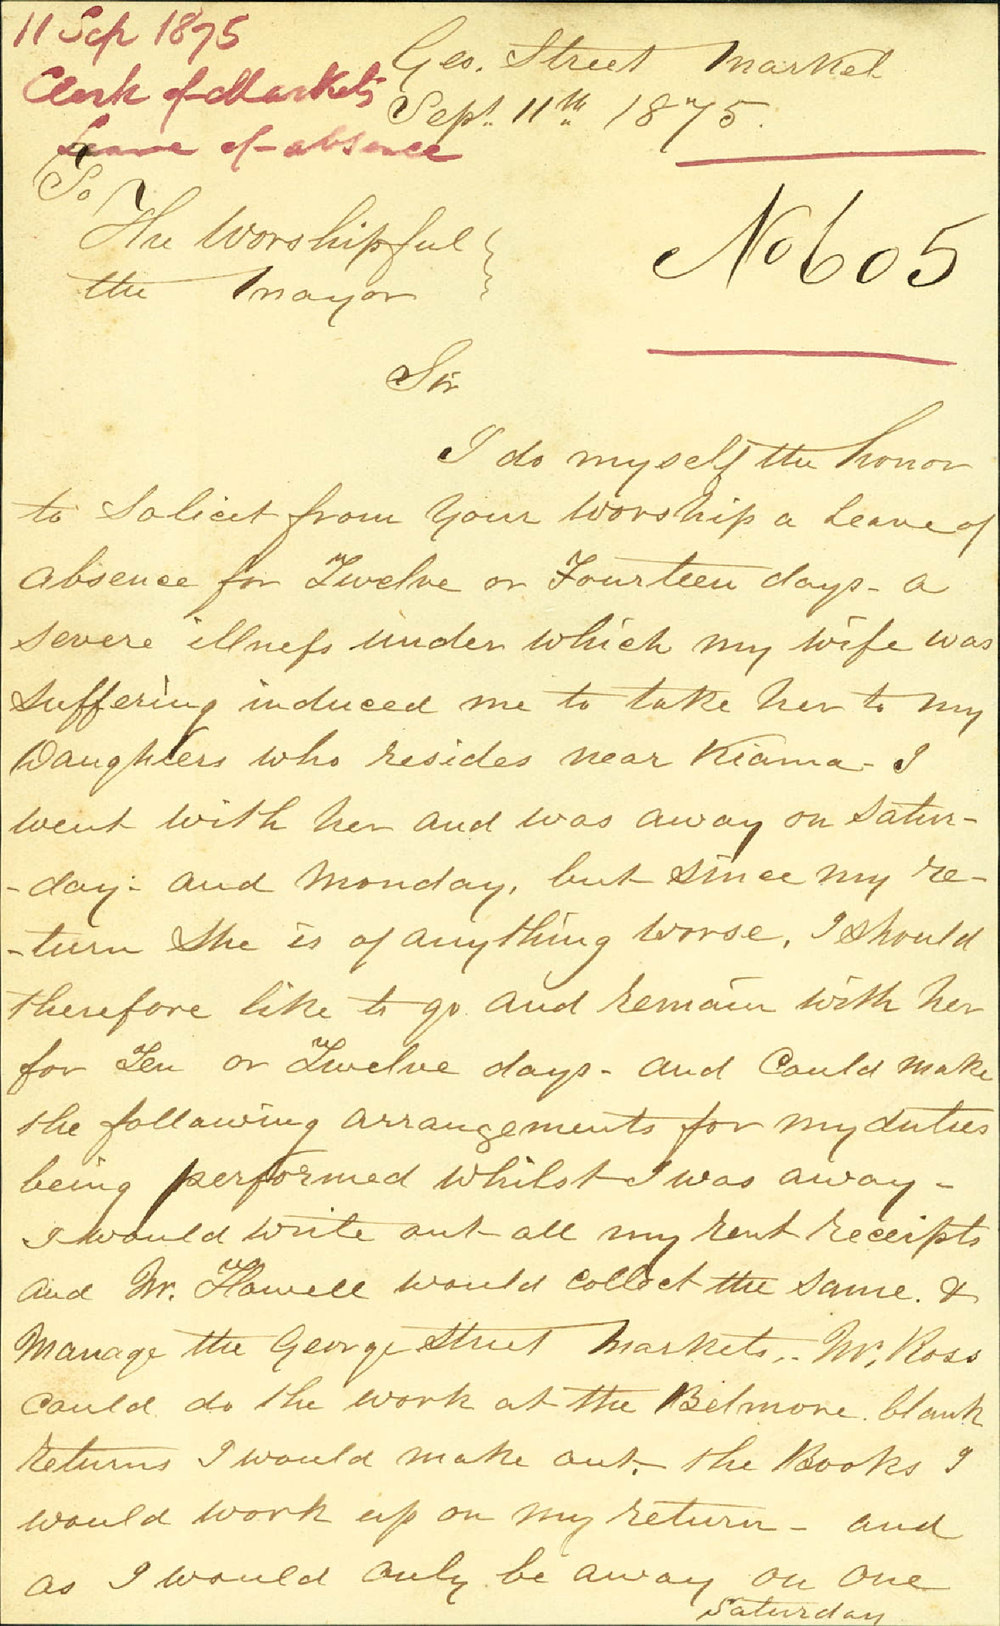 11 Sep 1875
Clerk of Markets
Leave of absence
Geo. Street Market
Sept. 11th 1875.
No 605
To
The Worshipful
the Mayor
Sir
I do myself the honor
to Solicit from Your Worship a Leave of
absence for Twelve or Fourteen days - a
severe illness under which my wife was
suffering induced me to take her to my
Daughters who resides near Kiama - I
went with her and was away on Satur-
-day - and Monday, but since my re-
-turn She is if anything worse, I should
therefore like to go and remain with her
for Ten or Twelve days - and Could make
the following arrangements for my duties
being performed whilst I was away -
I would write out all my rent receipts
and Mr. Howell would collect the same. &
Manage the George Street Markets,. Mr. Ross
could do the work at the Belmore. blank
returns I would make out. the Books I
would work up on my return - and
as I would only be away on one
Saturday